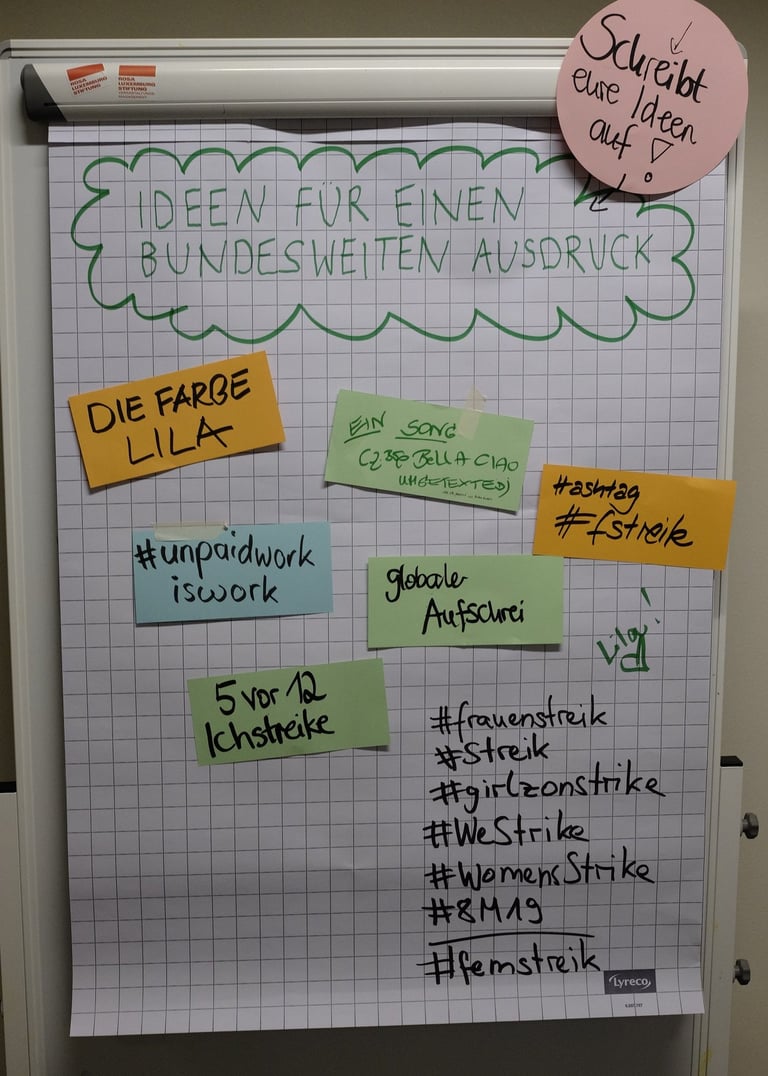 Schreibt
eure Ideen
auf!
ROSA
LUXEMBURG
STIFTUNG
ROSA
LUXEMBURG
STIFTUNG
IDEEN FÜR EINEN
BUNDESWEITEN AUSDRUCK
DIE FARBE
LILA
EIN SONG
(z BSP BELLA CIAO
UMGETEXTED)
#ashtag
#fstreik
#unpaidwork
iswork
globaler
Aufschrei
Lila!
5 vor 12
Ichstreike
#frauenstreik
#Streik
#girlzonstrike
#WeStrike
#WomensStrike
#8M19
#femstreik
Lyreco